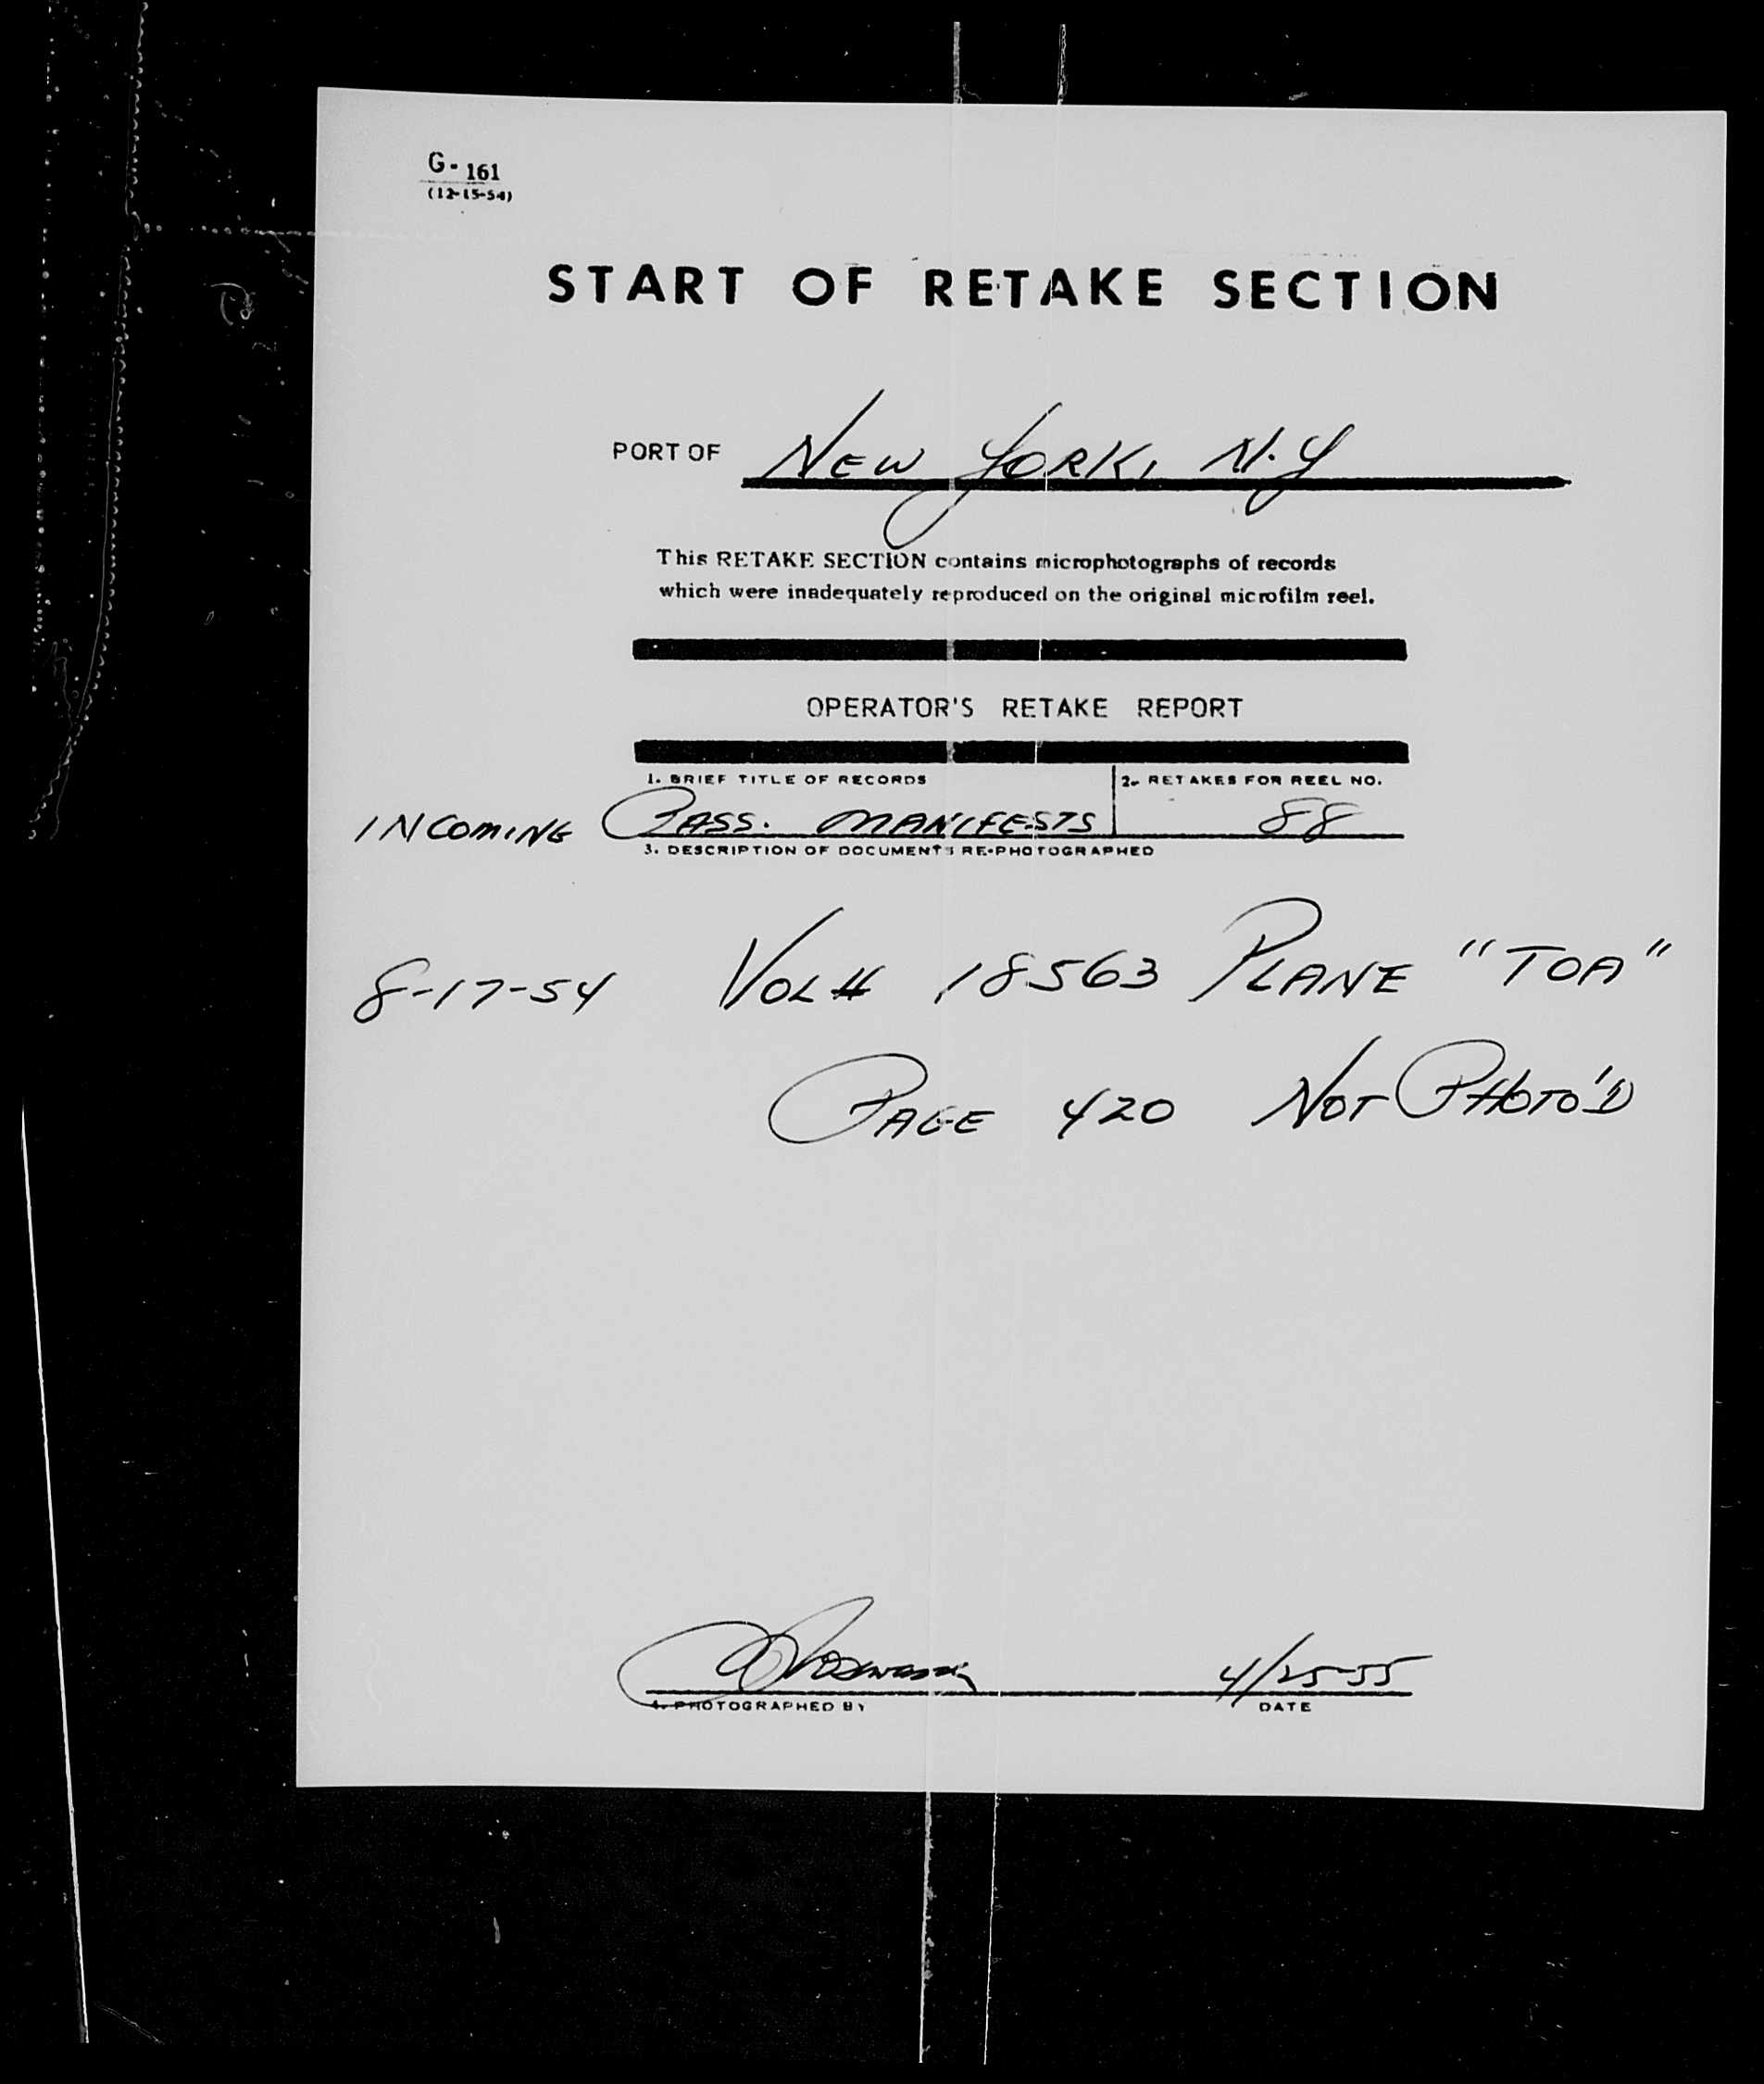 G-161
(12-15-54)
START OF RETAKE SECTION
PORT OF NEW YORK, N.Y
This RETAKE SECTION contains microphotographs of records
which were inadequately reproduced on the original microfilm reel.
OPERATOR'S RETAKE REPORT
1. BRIEF TITLE OF RECORDS 2. RETAKES FOR REEL NO.
INCOMING PASS. MANIFESTS 88
3. DESCRIPTION OF DOCUMENTS RE-PHOTOGRAPHED
8-17-54 VOL# 18563 PLANE "TOA"
PAGE 420 NOT PHOTO'D
4/25-55
4. PHOTOGRAPHED BY DATE